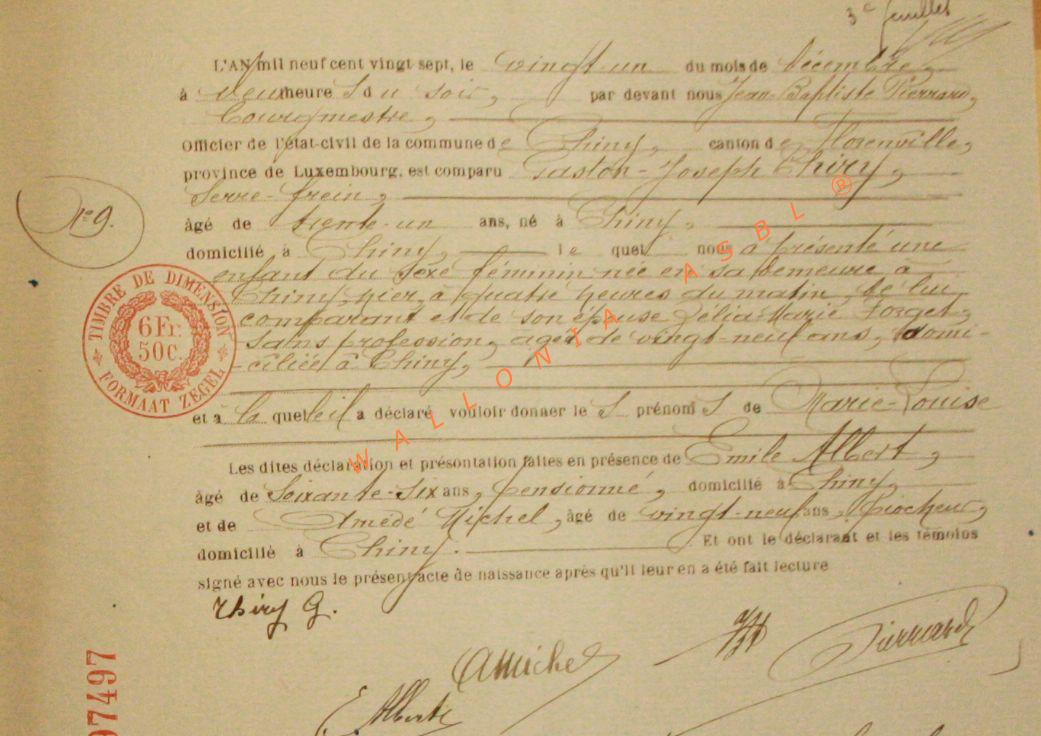 3e feuillet
L'AN mil neuf cent vingt sept, le vingt-un du mois de décembre,
à deux heure s du soir, par devant nous Jean-Baptiste Pierrard,
bourgmestre,
Officier de l'état-civil de la commune de Chiny, canton de Florenville,
province de Luxembourg, est comparu Gaston-Joseph Thiry,
Serre-frein,
âgé de trente-un ans, né à Chiny,
domicilié à Chiny, le quel nous a présenté une
enfant du sexe féminin née en sa demeure à
Chiny, hier, à quatre heures du matin, de lui
comparant et de son épouse Délia-Marie Forget,
sans profession, agée de vingt-neuf ans, domi-
ciliée à Chiny,
et à la quelle il a déclaré vouloir donner le s prénom s de Marie-Louise
Les dites déclaration et présentation faites en présence de Emile Albert,
âgé de Soixante-six ans, pensionné, domicilié à Chiny,
et de Amédé Michel, âgé de vingt-neuf ans, piocheur,
domicilié à Chiny. Et ont le déclarant et les témoins
signé avec nous le présent acte de naissance après qu'il leur en a été fait lecture
N° 9.
TIMBRE DE DIMENSION
6 Fr.
50 C.
FORMAAT ZEGEL
WALLONIA ASBL ®
Thiry G.
AMichel
Pierrard
E. Albert
97497